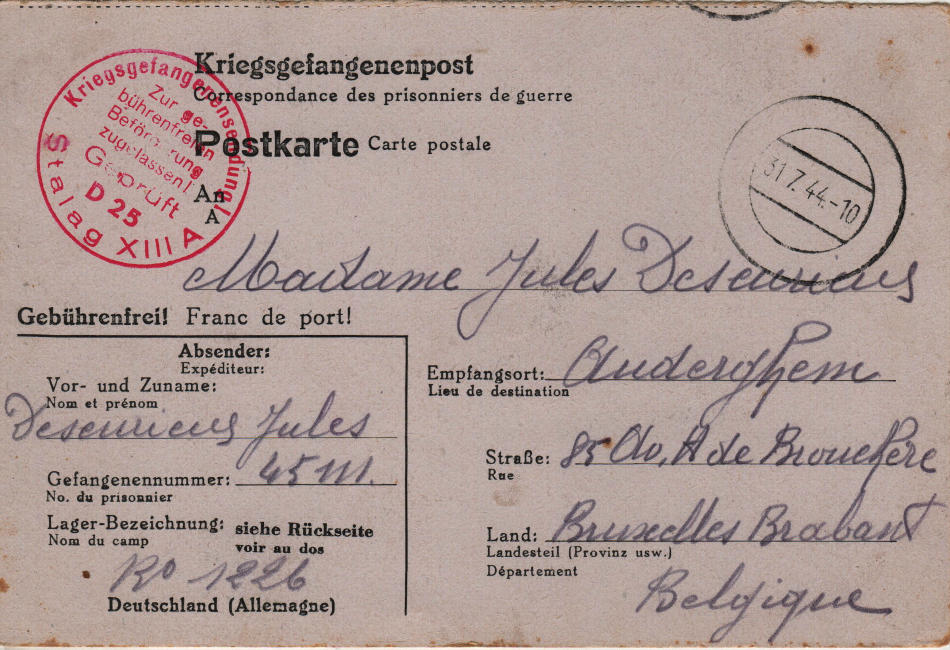 Kriegsgefangenenpost
Correspondance des prisonniers de guerre
Postkarte Carte postale
Kriegsgefangenensendung!
Zur ge-
bührenfreien
Beförderung
zugelassen!
Geprüft
D 25
Stalag XIII A
31.7.44.-10
An
A
Madame Jules
Gebührenfrei! Franc de port!
Absender:
Expéditeur:
Vor- und Zuname:
Nom et prénom
Jules
Gefangenennummer:
No. du prisonnier
Lager-Bezeichnung: siehe Rückseite
Nom du camp voir au dos
1226
Deutschland (Allemagne)
Empfangsort: Auderghem
Lieu de destination
Straße: 85 Av. A de Brouckère
Rue
Land: Bruxelles Brabant
Landesteil (Provinz usw.)
Département
Belgique